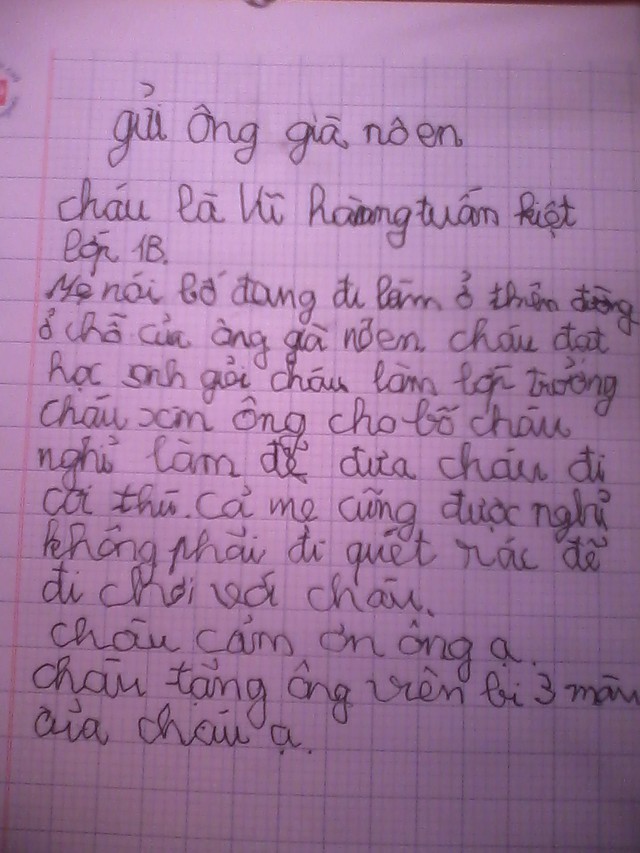 gửi ông già nôen
cháu là Vũ hoàng tuấn kiệt
lớp 1B.
Mẹ nói bố đang đi làm ở thiên đường
ở chỗ của ông già nôen. cháu đạt
học sinh giỏi cháu làm lớp trưởng
cháu xin ông cho bố cháu
nghỉ làm để đưa cháu đi
coi thú. cả mẹ cũng được nghỉ
không phải đi quét rác để
đi chơi với cháu.
cháu cảm ơn ông ạ.
cháu tặng ông viên bi 3 màu
của cháu ạ.